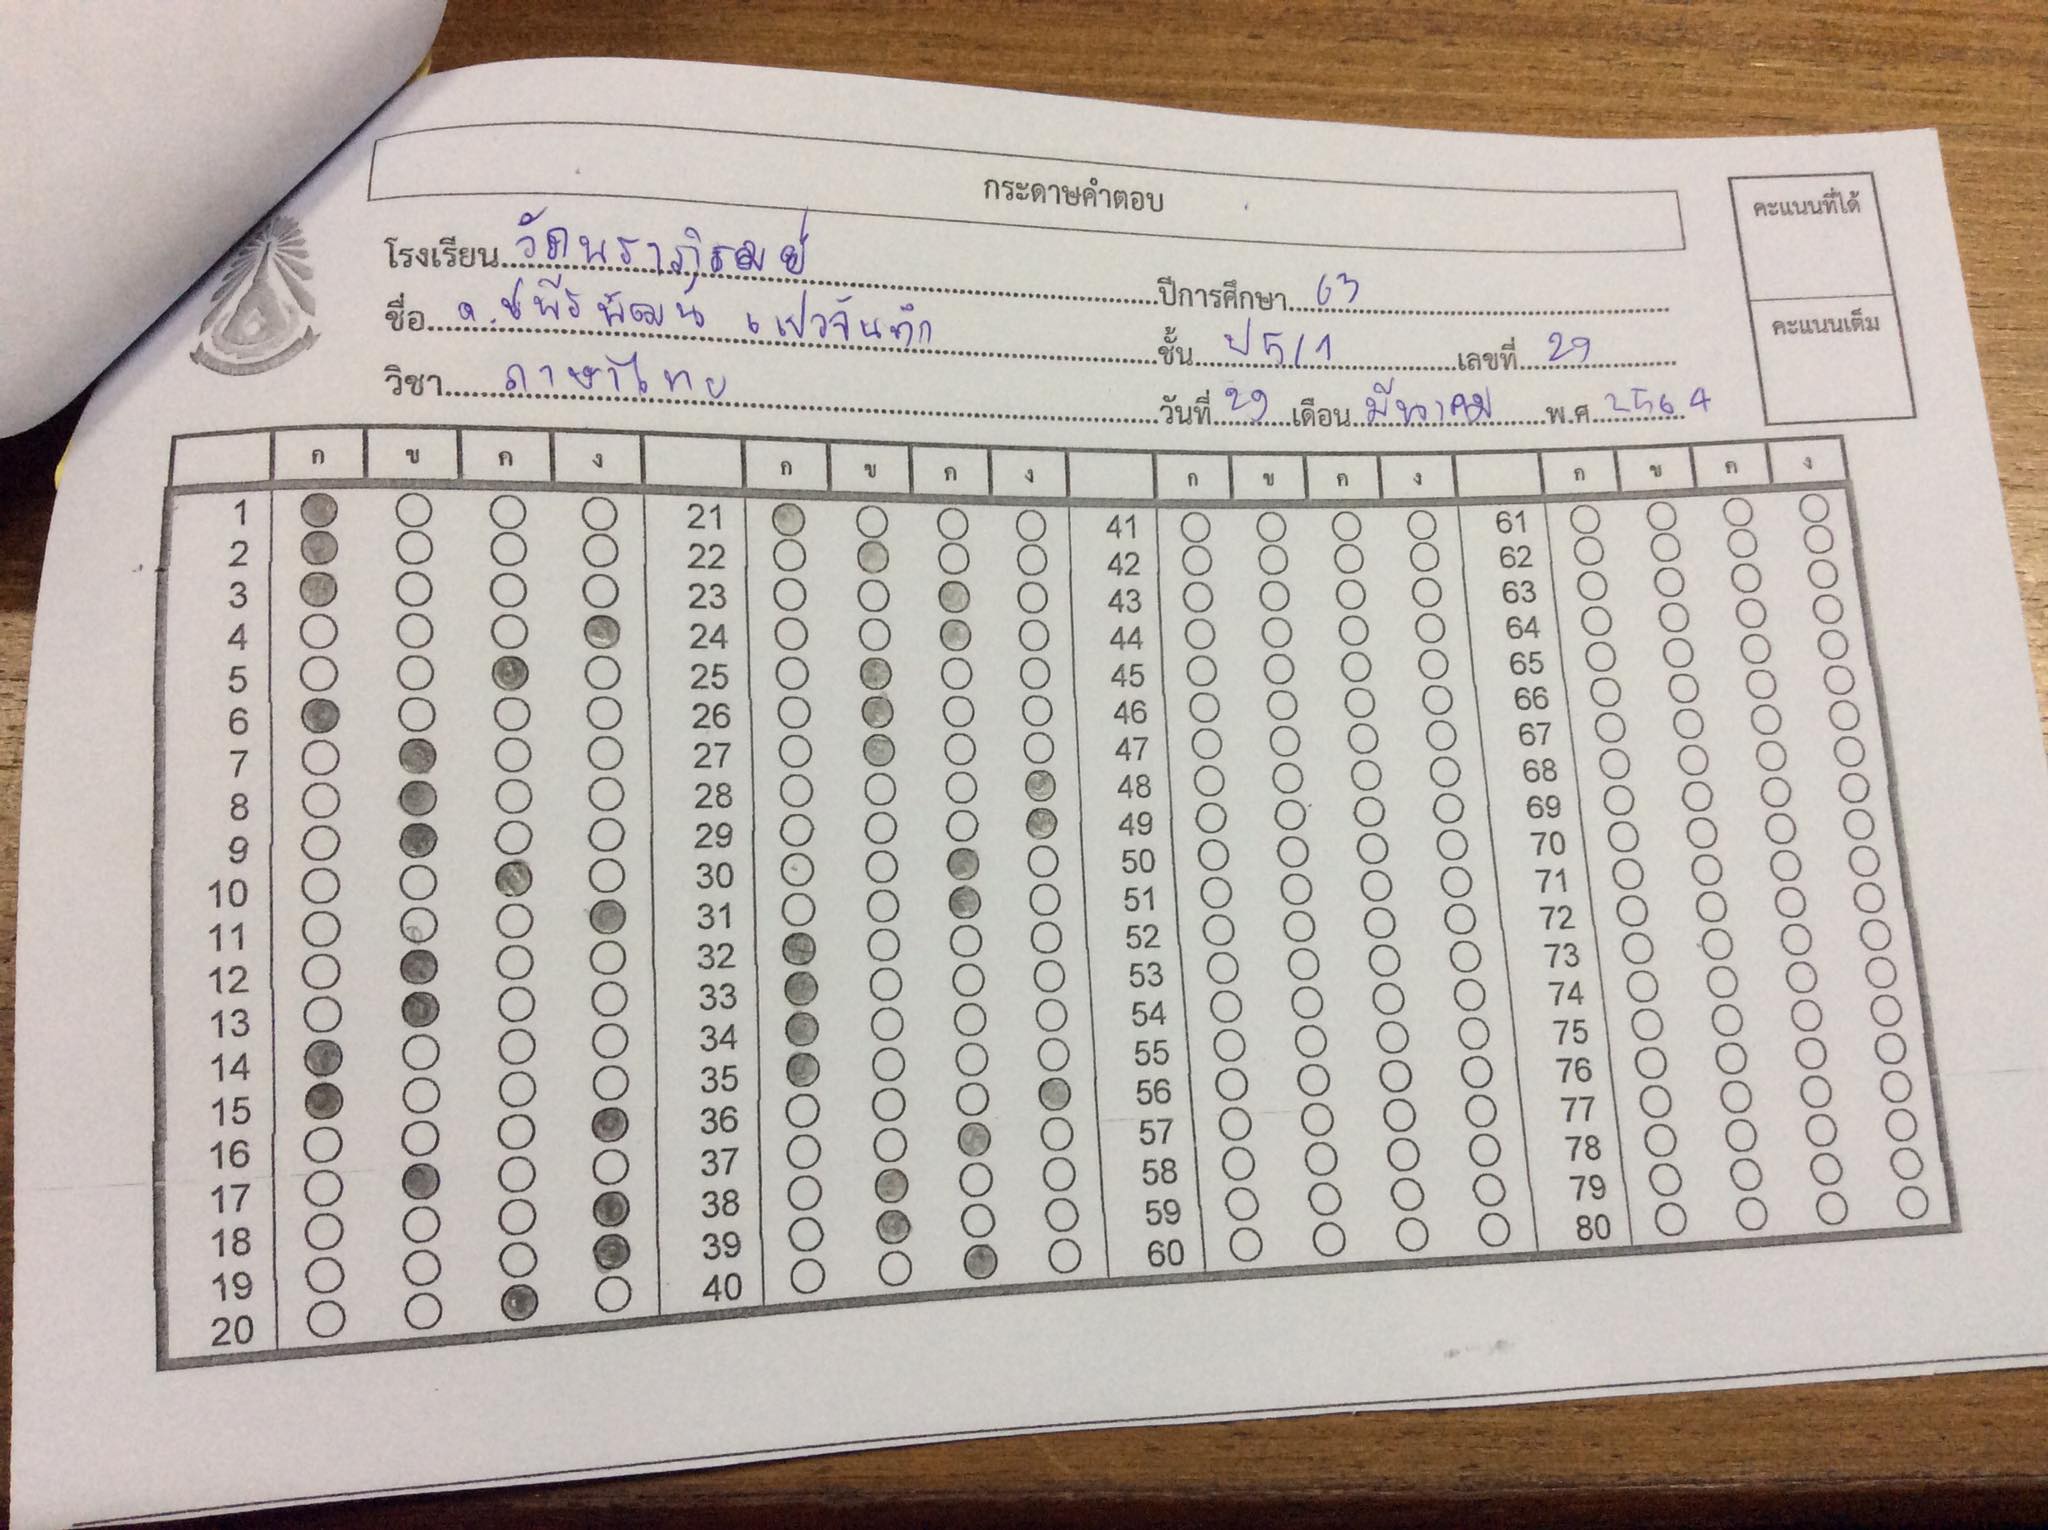 กระดาษคำตอบ
คะแนนที่ได้
คะแนนเต็ม
โรงเรียน วัดนราภิรมย์ ปีการศึกษา 63
ชื่อ ด.ช พีรพัฒน์ แปวจันทึก ชั้น ป 5/1 เลขที่ 29
วิชา ภาษาไทย วันที่ 29 เดือน มีนาคม พ.ศ. 2564
ก ข ค ง ก ข ค ง ก ข ค ง ก ข ค ง
1 21 41 61
2 22 42 62
3 23 43 63
4 24 44 64
5 25 45 65
6 26 46 66
7 27 47 67
8 28 48 68
9 29 49 69
10 30 50 70
11 31 51 71
12 32 52 72
13 33 53 73
14 34 54 74
15 35 55 75
16 36 56 76
17 37 57 77
18 38 58 78
19 39 59 79
20 40 60 80